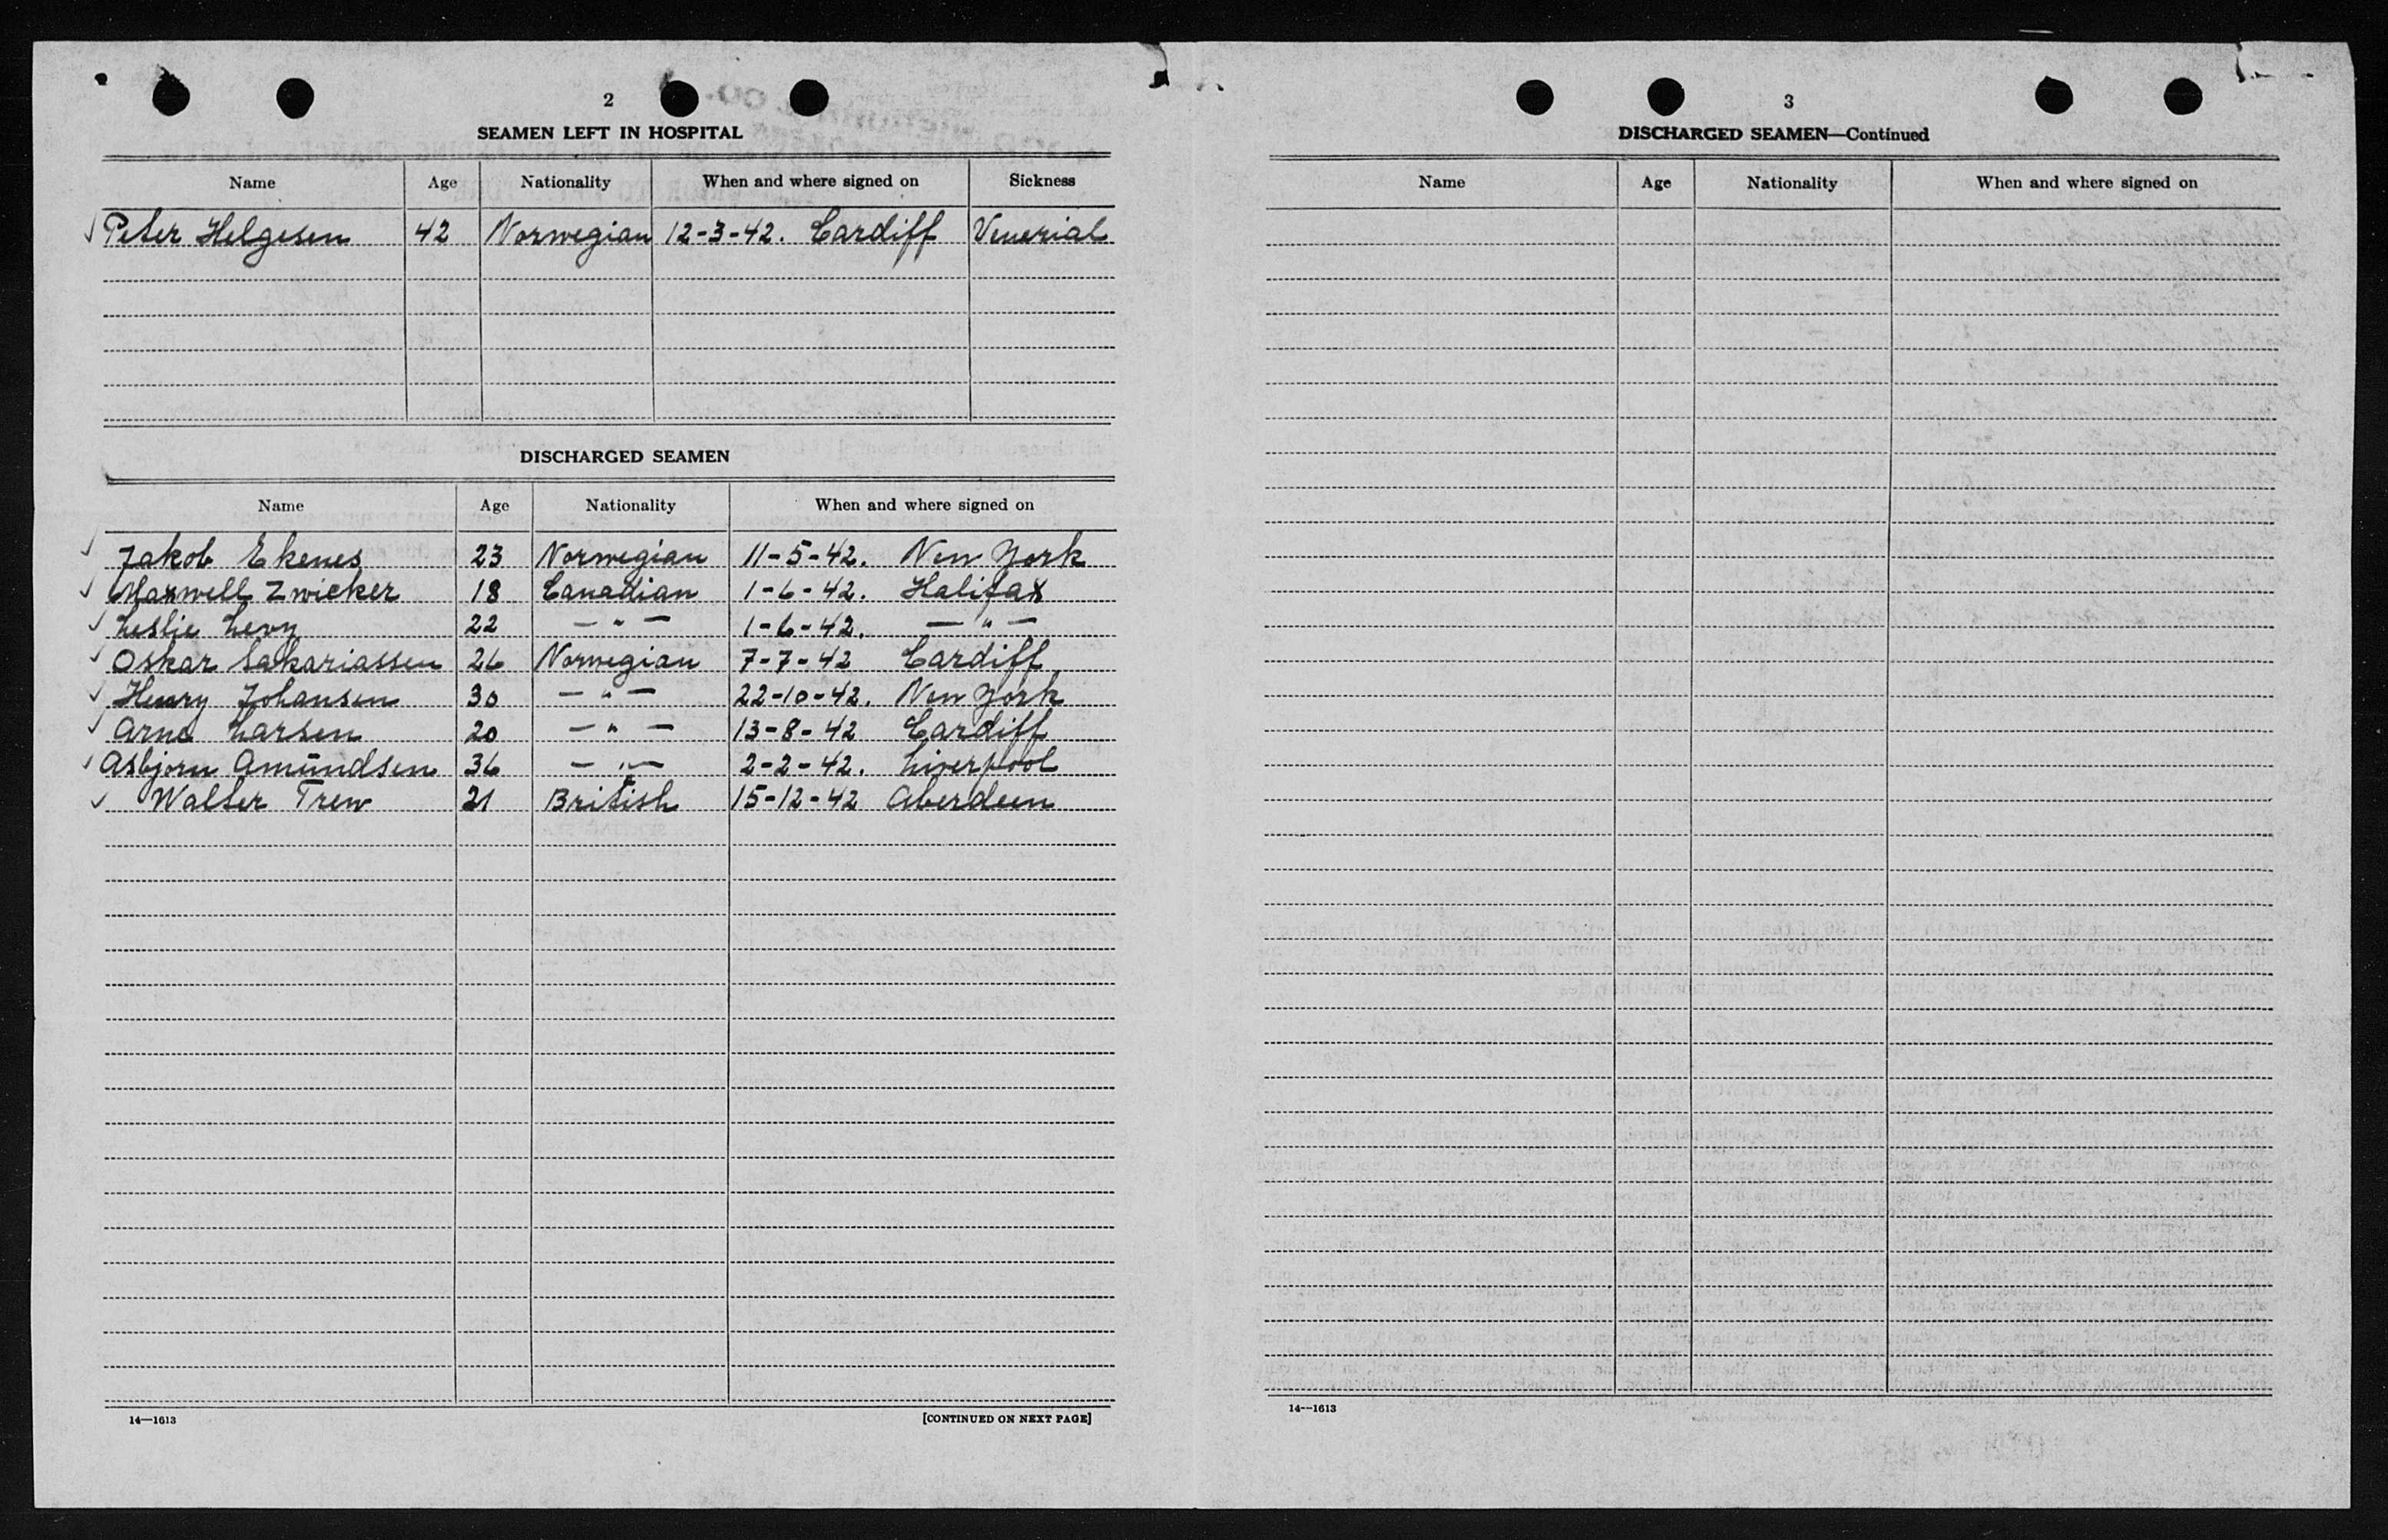 2
SEAMEN LEFT IN HOSPITAL
Name Age Nationality When and where signed on Sickness
✓ Peter Helgesen 42 Norwegian 12-3-42. Cardiff Venerial
DISCHARGED SEAMEN
Name Age Nationality When and where signed on
✓ Jakob Ekenes 23 Norwegian 11-5-42. New York
✓ Maxwell Zwicker 18 Canadian 1-6-42. Halifax
✓ Leslie Levy 22 — " — 1-6-42. — " —
✓ Oskar Sakariassen 26 Norwegian 7-7-42 Cardiff
✓ Henry Johansen 30 — " — 22-10-42. New York
✓ Arne Larsen 20 — " — 13-8-42 Cardiff
✓ Asbjorn Amundsen 36 — " — 2-2-42. Liverpool
✓ Walter Trew 21 British 15-12-42 Aberdeen
14—1613 [CONTINUED ON NEXT PAGE]
3
DISCHARGED SEAMEN—Continued
Name Age Nationality When and where signed on
14—1613